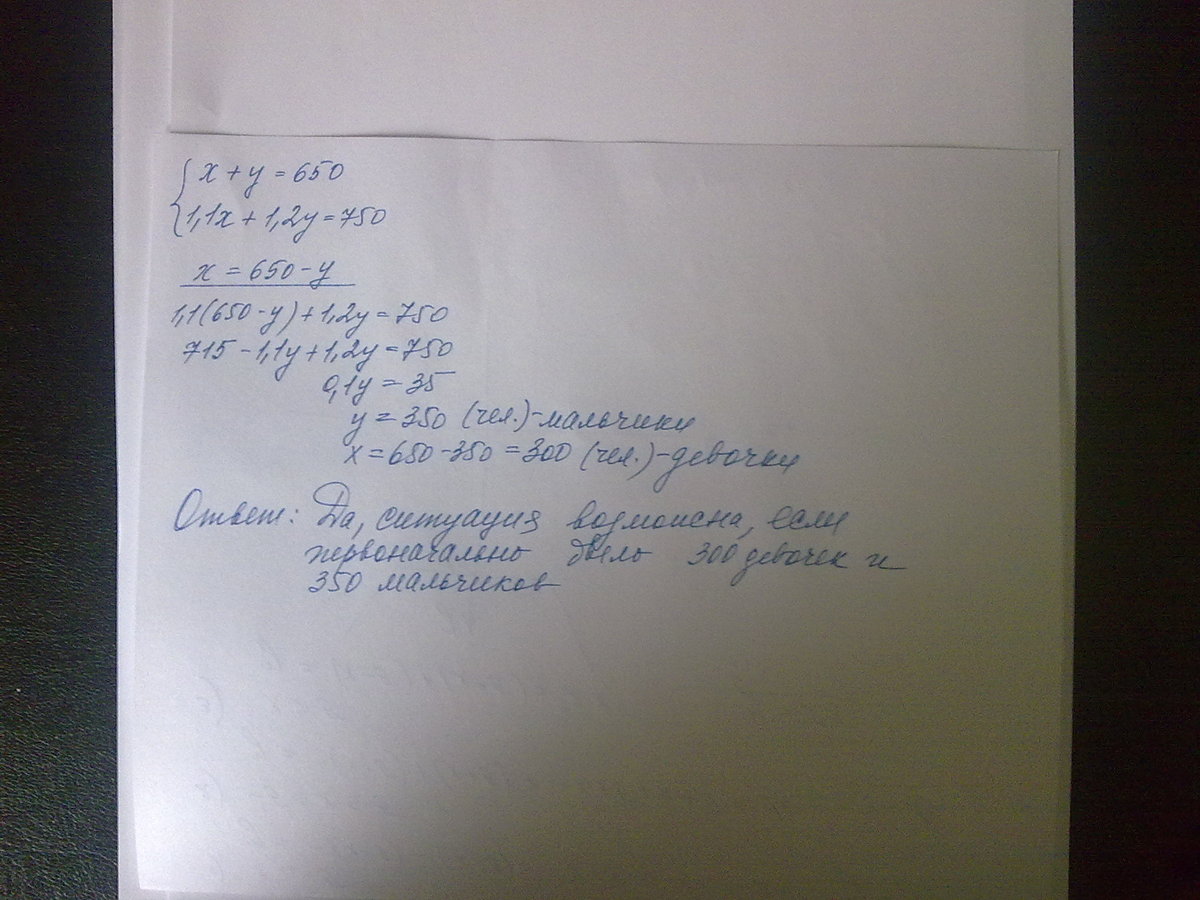 x + y = 650
1,1x + 1,2y = 750
x = 650 - y
1,1(650 - y) + 1,2y = 750
715 - 1,1y + 1,2y = 750
0,1y = 35
y = 350 (чел.) - мальчики
x = 650 - 350 = 300 (чел.) - девочки
Ответ: Да, ситуация возможна, если
первоначально было 300 девочек и
350 мальчиков